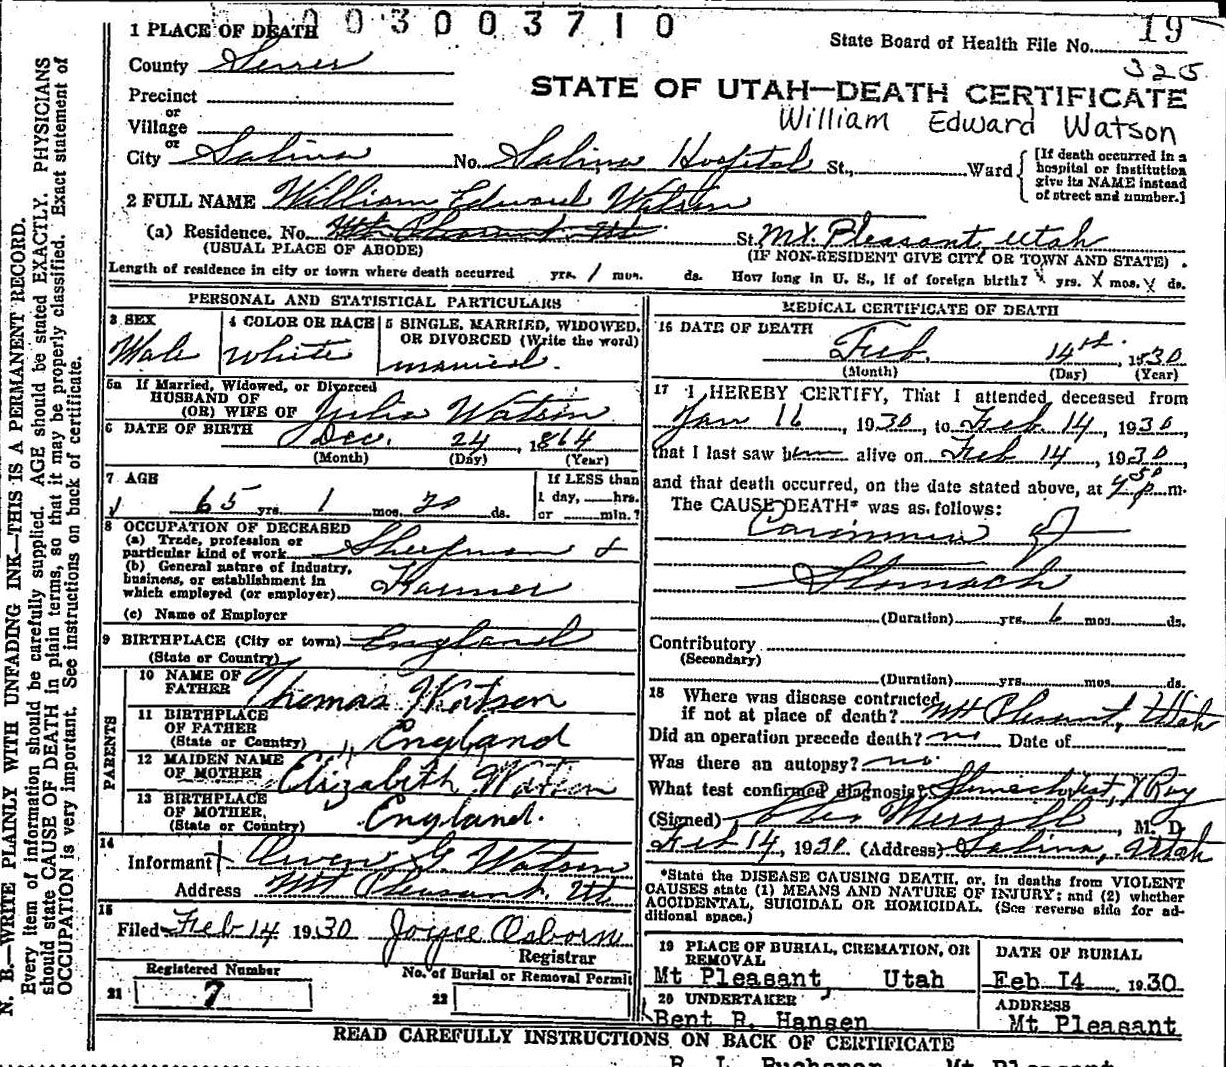 1003003710
1 PLACE OF DEATH
State Board of Health File No. 19
325
County Sevier
STATE OF UTAH—DEATH CERTIFICATE
Precinct
or
Village
William Edward Watson
or
City Salina No. Salina Hospital St., Ward
[If death occurred in a
hospital or institution
give its NAME instead
of street and number.]
2 FULL NAME William Edward Watson
(a) Residence. No. Mt Pleasant, Ut St. Mt. Pleasant, Utah
(USUAL PLACE OF ABODE) (IF NON-RESIDENT GIVE CITY OR TOWN AND STATE)
Length of residence in city or town where death occurred yrs. 1 mos. ds. How long in U. S., if of foreign birth? X yrs. X mos. X ds.
PERSONAL AND STATISTICAL PARTICULARS
3 SEX 4 COLOR OR RACE 5 SINGLE, MARRIED, WIDOWED,
OR DIVORCED (Write the word)
Male White married.
5a If Married, Widowed, or Divorced
HUSBAND OF
(OR) WIFE OF Julia Watson
6 DATE OF BIRTH Dec. 24, 1864
(Month) (Day) (Year)
7 AGE If LESS than
1 day, hrs.
65 yrs. 1 mos. 20 ds. or min.?
8 OCCUPATION OF DECEASED
(a) Trade, profession or
particular kind of work Sheepman &
(b) General nature of industry,
business, or establishment in
which employed (or employer) Farmer
(c) Name of Employer
9 BIRTHPLACE (City or town) England
(State or Country)
PARENTS
10 NAME OF
FATHER Thomas Watson
11 BIRTHPLACE
OF FATHER
(State or Country) England
12 MAIDEN NAME
OF MOTHER Elizabeth Watson
13 BIRTHPLACE
OF MOTHER,
(State or Country) England.
14
Informant Owen G. Watson
Address Mt Pleasant, Ut
15
Filed Feb 14 1930 Joyce Osborn
Registrar
Registered Number No. of Burial or Removal Permit
21 7 22
MEDICAL CERTIFICATE OF DEATH
16 DATE OF DEATH
Feb. 14th. 1930
(Month) (Day) (Year)
17 I HEREBY CERTIFY, That I attended deceased from
Jan 16, 1930, to Feb 14, 1930,
that I last saw him alive on Feb 14, 1930,
and that death occurred, on the date stated above, at p m.
The CAUSE DEATH* was as follows:
Carcinoma of
Stomach
(Duration) yrs. 6 mos. ds.
Contributory
(Secondary)
(Duration) yrs. mos. ds.
18 Where was disease contracted
if not at place of death? Mt Pleasant, Utah
Did an operation precede death? no Date of
Was there an autopsy? no.
What test confirmed diagnosis? X Ray
(Signed) M. D.
Feb 14, 1930 (Address) Salina, Utah
*State the DISEASE CAUSING DEATH, or, in deaths from VIOLENT
CAUSES state (1) MEANS AND NATURE OF INJURY; and (2) whether
ACCIDENTAL, SUICIDAL OR HOMICIDAL. (See reverse side for ad-
ditional space.)
19 PLACE OF BURIAL, CREMATION, OR
REMOVAL DATE OF BURIAL
Mt Pleasant, Utah Feb 14 1930
20 UNDERTAKER ADDRESS
Bent R. Hansen Mt Pleasant
READ CAREFULLY INSTRUCTIONS ON BACK OF CERTIFICATE
R. L. Buchanan Mt Pleasant
N. B.—WRITE PLAINLY WITH UNFADING INK—THIS IS A PERMANENT RECORD.
Every item of information should be carefully supplied. AGE should be stated EXACTLY. PHYSICIANS
should state CAUSE OF DEATH in plain terms, so that it may be properly classified. Exact statement of
OCCUPATION is very important. See instructions on back of certificate.